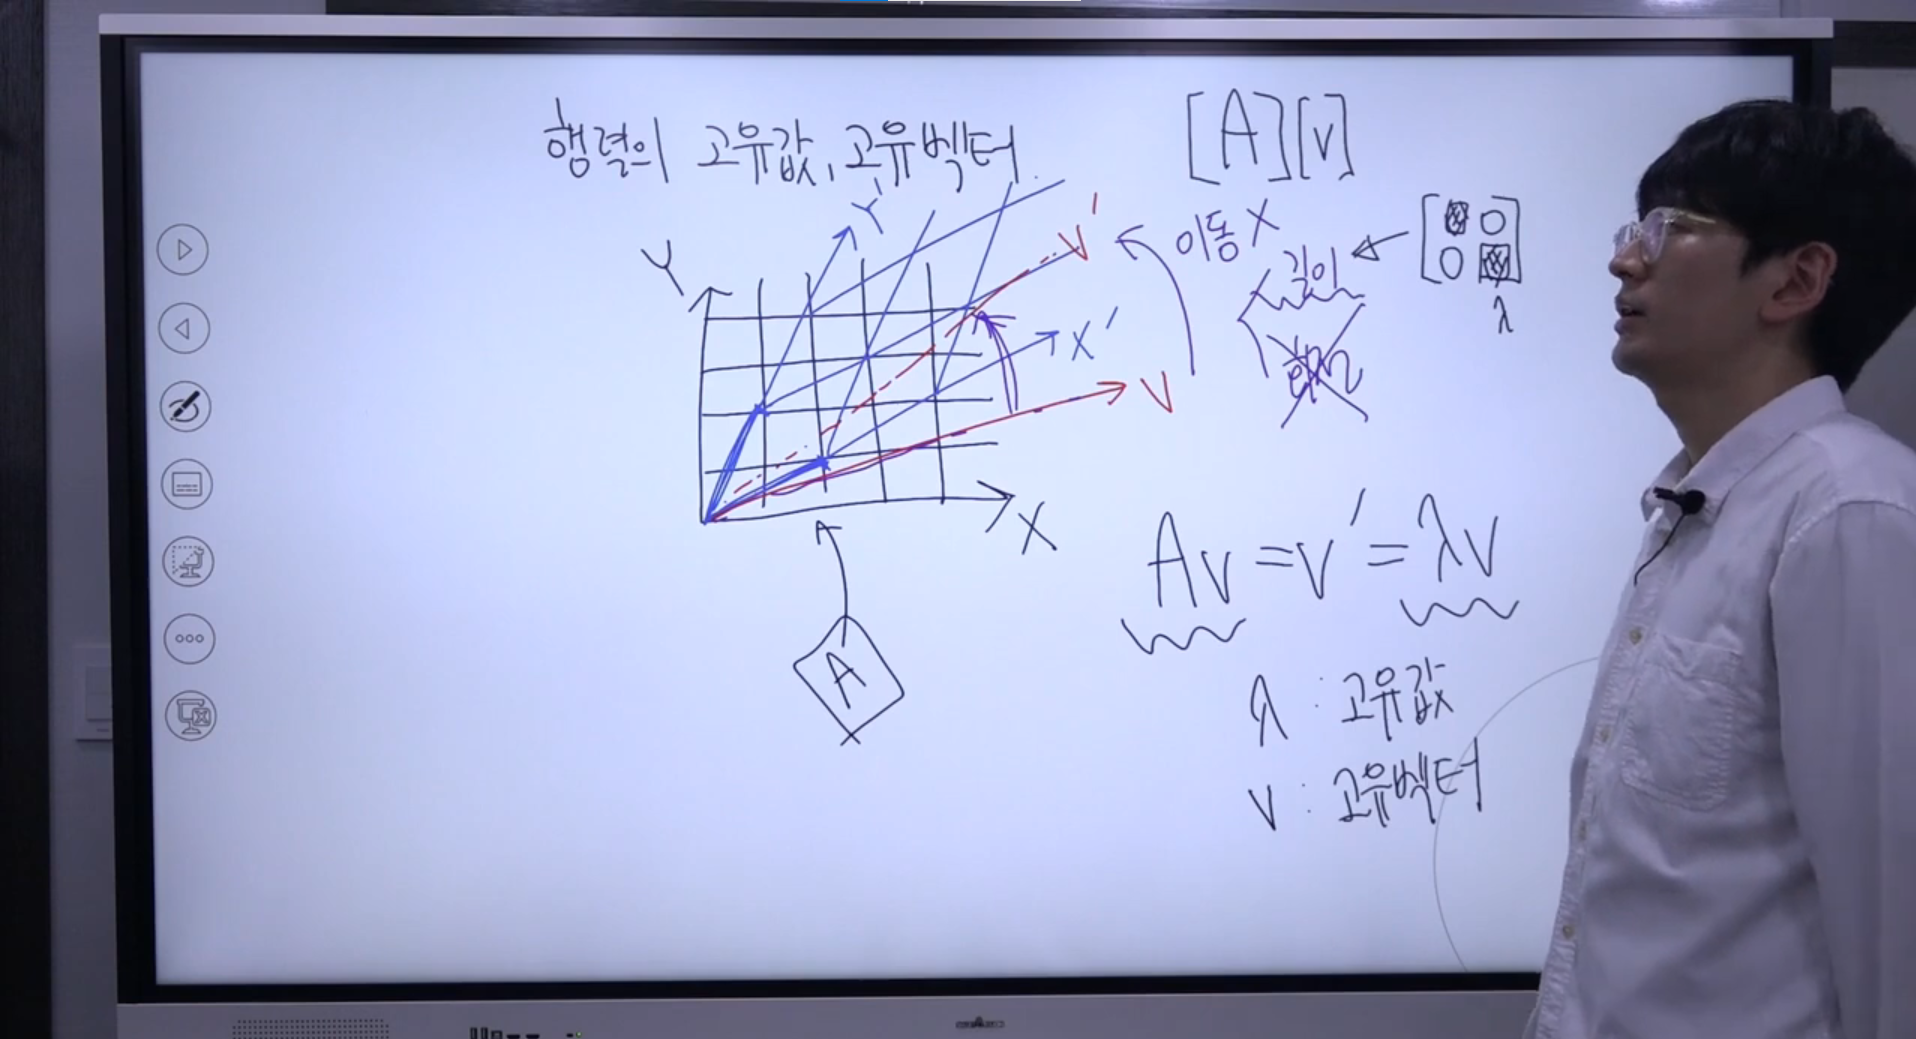 행렬의 고유값, 고유벡터
[A][v]
Y
Y'
V'
X'
V
X
A
이동 X
길이
방향
0
0
λ
Av = v' = λv
λ : 고유값
v : 고유벡터